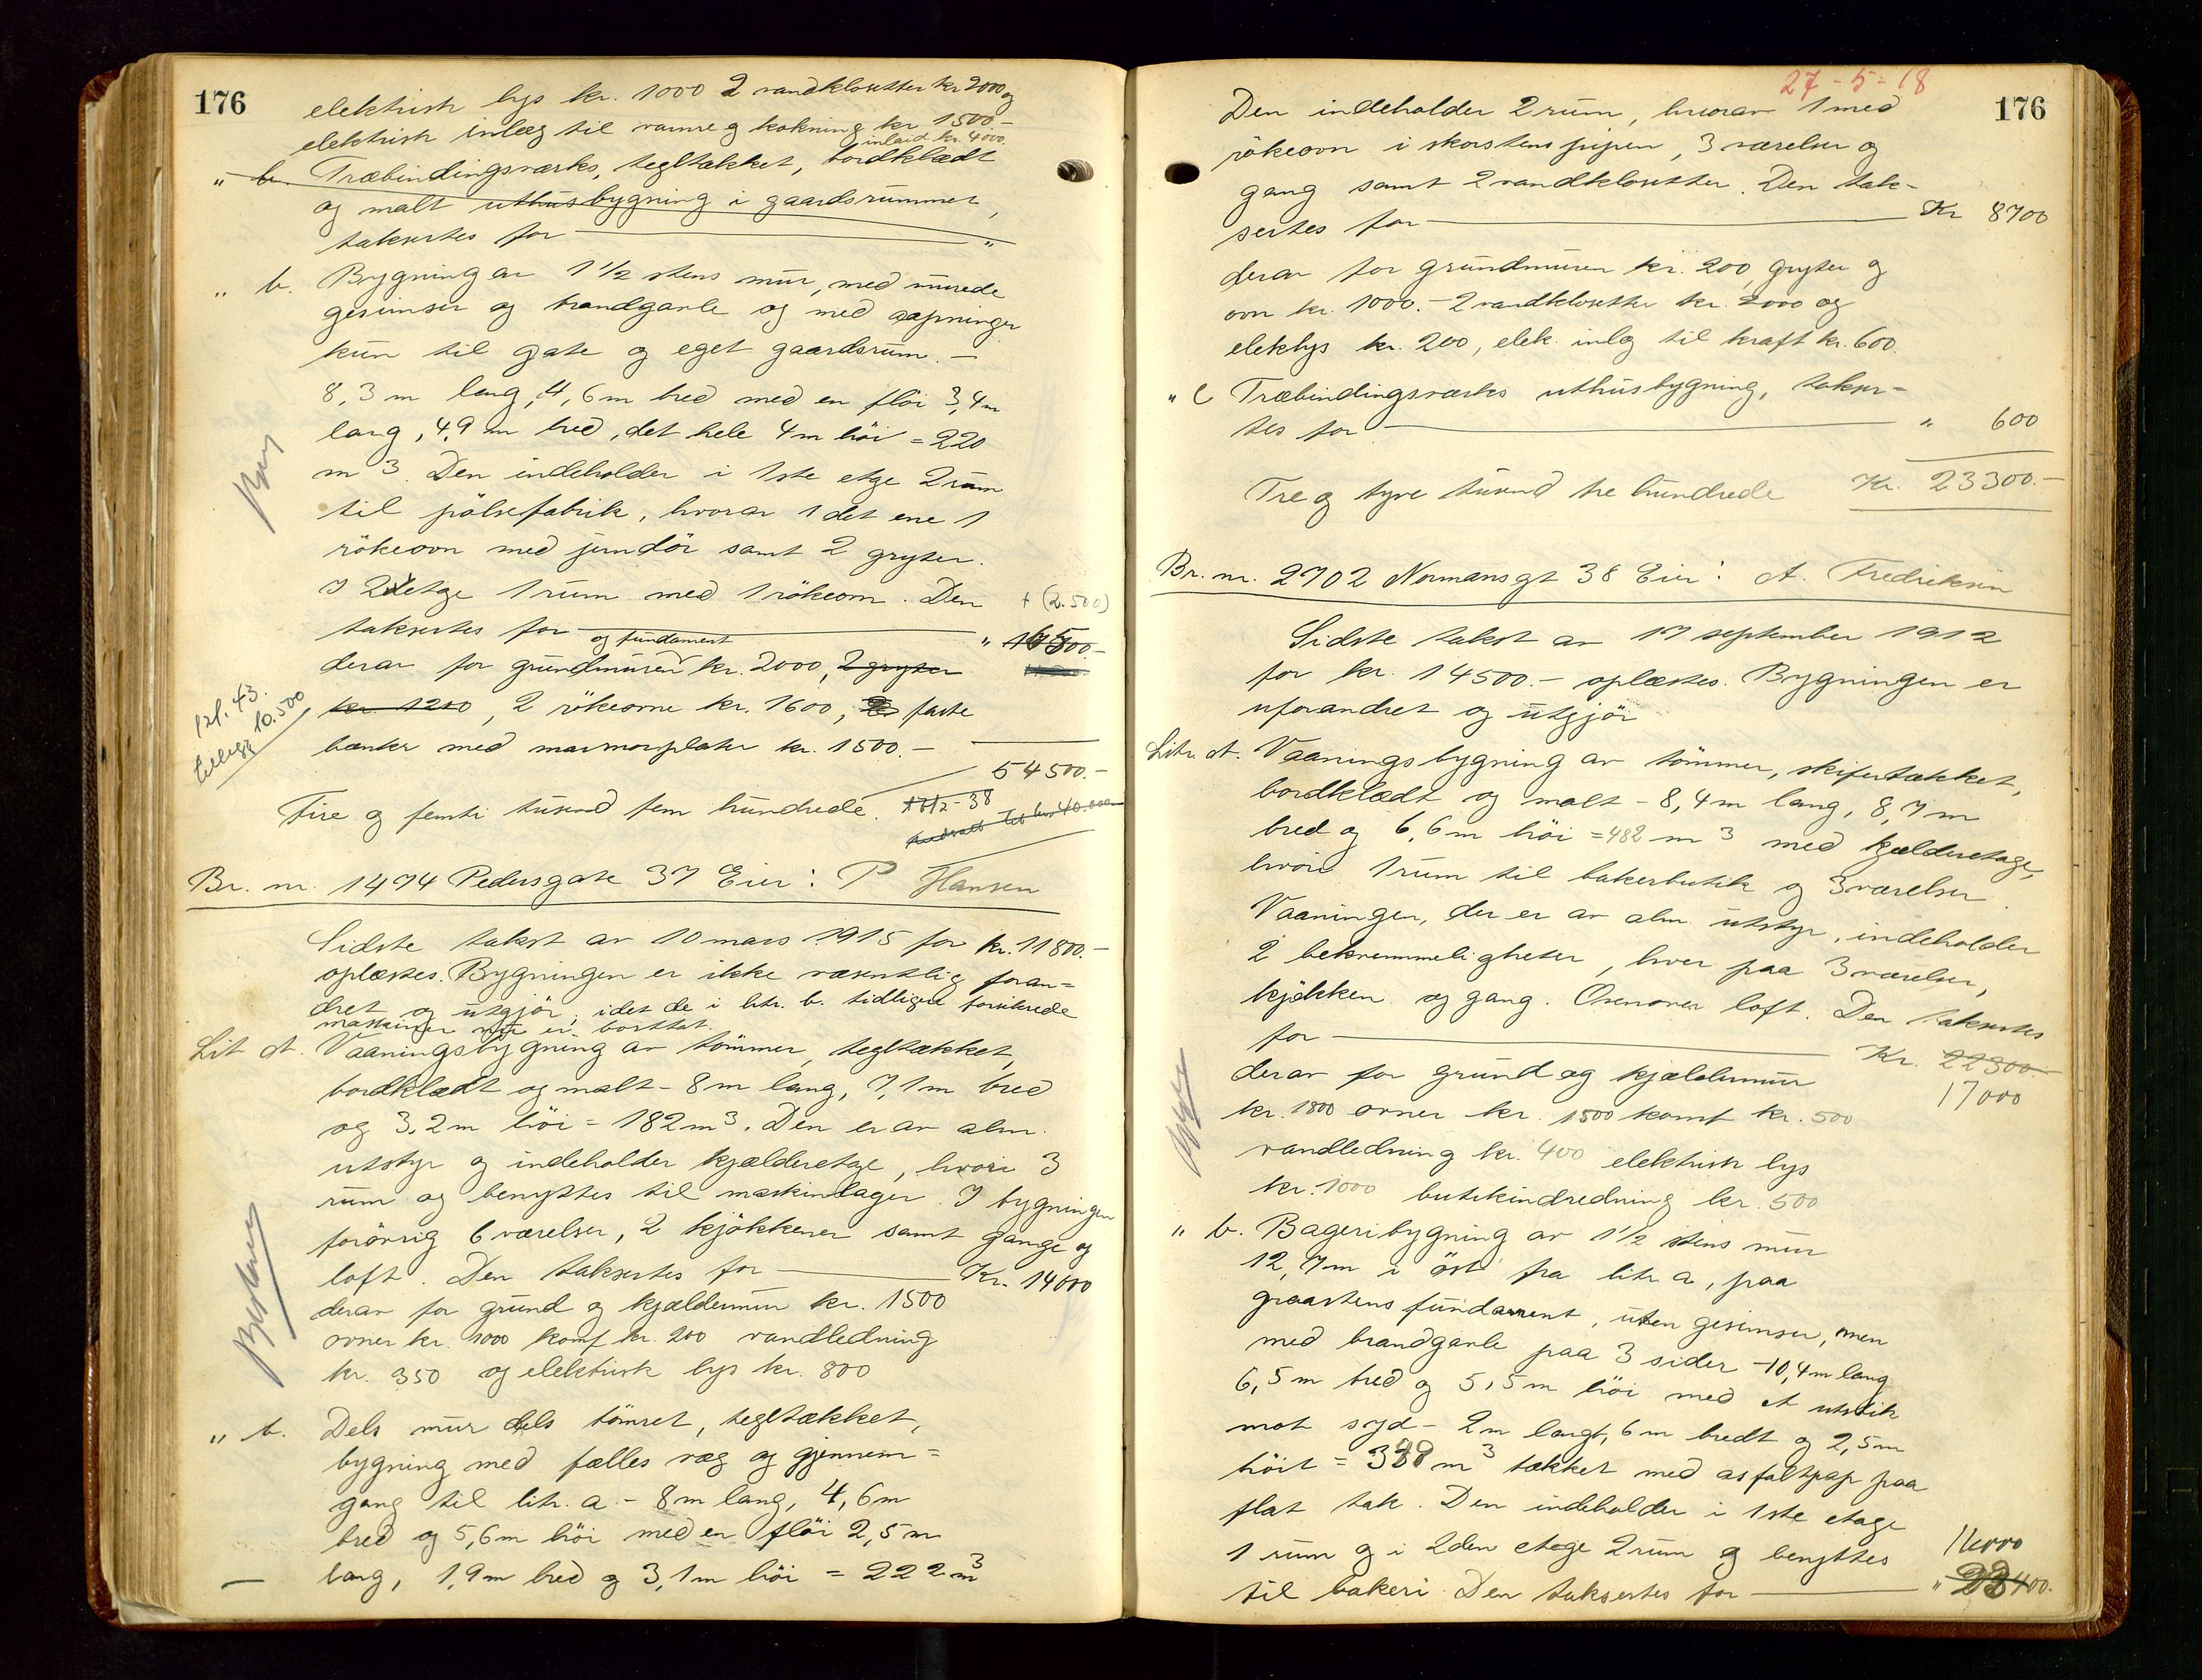 176
elektrisk lys kr. 1000 2 vandklosetter kr 2000 og
elektrisk inlæg til varme og kokning kr 1500-
inlaid kr. 4000.
" b. Træbindingsværks, tegltækket, bordklædt
og malt uthusbygning i gaardsrummet,
takseres for "
" b. Bygning av 1 1/2 stens mur, med murede
gesimser og brandgavle og med aapninger
kun til gate og eget gaardsrum. -
8,3 m lang, 4,6 m bred med en flöi 3,4 m
lang, 4,9 m bred, det hele 4 m höi = 220
m 3. Den indeholder i 1ste etge 2 rum
til pölsefabrik, hvorav i det ene 1
rökeovn med jerndör samt 2 gryter.
I 2 etge 1 rum med 1 rökeovn. Den + (2.500)
takseres for " 16500.-
og fundament
derav for grundmuren kr. 2000, 2 gryter
kr. 1200, 2 rökeovne kr. 1600, faste
bænker med marmorplater kr. 1500.-
54500.-
prf. 43.
tillegg 10.500
Fire og femti tusend fem hundrede.
Br. nr. 1494 Pedersgate 37 Eier: P Hansen
Sidste takst av 10 mars 1915 for kr. 11800.-
oplæstes. Bygningen er ikke væsentlig foran=
dret og utgjör, idet de i litr. b. tidligere forsikrede
maskiner nu er borttat.
Lit A. Vaaningsbygning av tömmer, tegltækket,
bordklædt og malt - 8 m lang, 7,1 m bred
og 3,2 m höi = 182 m3. Den er av alm.
utstyr og indeholder kjælderetage, hvori 3
rum og benyttes til maskinlager. I bygningen
forövrig 6 værelser, 2 kjökkener samt gange og
loft. Den takseres for Kr. 14000
derav for grund og kjældermur kr. 1500
ovner kr. 1000 komf kr. 200 vandledning
kr. 350 og elektrisk lys kr. 800
" b. Dels mur dels tömret, tegltækket,
bygning med fælles væg og gjennem=
gang til litr. a - 8 m lang, 4,6 m
bred og 5,6 m höi med en flöi 2,5 m
lang, 1,9 m bred og 3,1 m höi = 222 m3
27-5-18
176
Den indeholder 2 rum, hvorav 1 med
rökeovn i skorstenspipen, 3 værelser og
gang samt 2 vandklosetter. Den tak-
sertes for Kr 8700
derav for grundmuren kr. 200, gryter og
ovn kr. 1000.- 2 vandklosetter kr. 2000 og
eleklys kr. 200, elek. inlg til kraft kr. 600.
" C Træbindingsværks uthusbygning, takser=
tes for " 600
Tre og tyve tusend tre hundrede Kr. 23300.-
Br. nr. 2702 Normansgt 38 Eier: A. Fredriksen
Sidste takst av 17 september 1912
for kr. 14500.- oplæstes. Bygningen er
uforandret og utgjör
Litr. A. Vaaningsbygning av tömmer, skifertækket,
bordklædt og malt - 8,4 m lang, 8,7 m
bred og 6,6 m höi = 482 m 3 med kjælderetage,
hvori 1 rum til bakerbutik og 3 værelser.
Vaaningen, der er av alm. utstyr, indeholder
2 bekvemmeligheter, hver paa 3 værelser,
kjökken og gang. Ovenover loft. Den takseres
for Kr. 22300.-
17000
derav for grund og kjældermur
kr. 1800 ovner kr. 1500 komf kr. 500
vandledning kr. 400 elektrisk lys
kr. 1000 butikindredning kr. 500
" b. Bageribygning av 1 1/2 stens mur
12,7 m i öst fra litr a, paa
graastens fundament, uten gesimser, men
med brandgavle paa 3 sider - 10,4 m lang
6,5 m bred og 5,5 m höi med et utstik
mot syd - 2 m langt, 6 m bredt og 2,5 m
höit = 398 m 3 tækket med asfaltpap paa
flat tak. Den indeholder i 1ste etage
1 rum og i 2den etage 2 rum og benyttes
16000
til bakeri. Den takseres for "